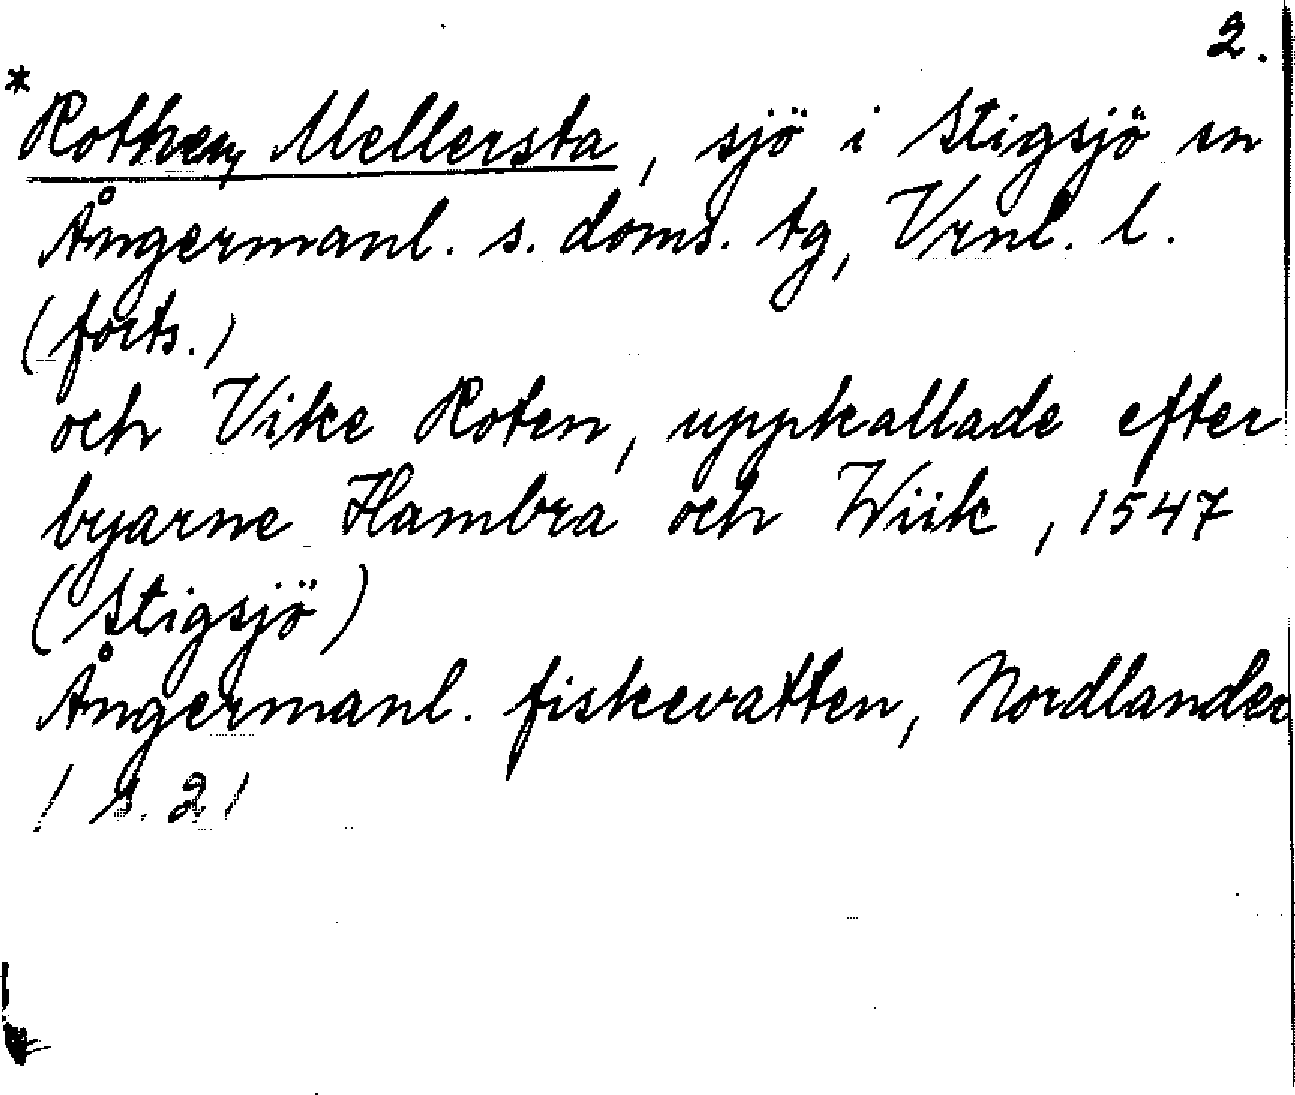 2.
* Rothen, Mellersta, sjö i Stigsjö sn
Ångermanl. s. doms. tg, Vrnl. l.
(forts.)
och Vike Roten, uppkallade efter
byarne Hambra och Wiik, 1547
(Stigsjö)
Ångermanl. fiskevatten, Nordlander
/ s. 2 /